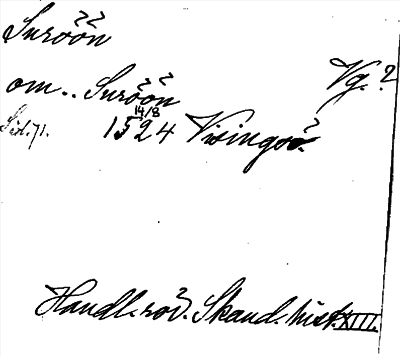 Suröön
Vg.?
om.. Suröön
Sid. 71. 15 14/8 24 Visingsö.
Handl. rör. Skand. hist. XIII.